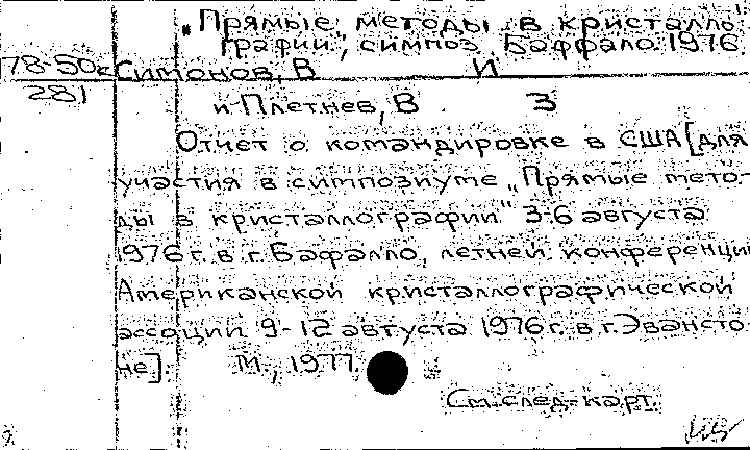 „Прямые методы в кристалло-
графии", симпоз. Баффало. 1976.
78-50с Симонов, В И
281
и Плетнев, В. З
Отчет о командировке в США [для
участия в симпозиуме „Прямые мето-
ды в кристаллографии" 3-6 августа
1976 г. в г. Бафалло, летней конференции
Американской кристаллографической
ассоции 9-12 августа 1976 г. в г. Эвансто-
не]. М., 1977.
См. след. карт.